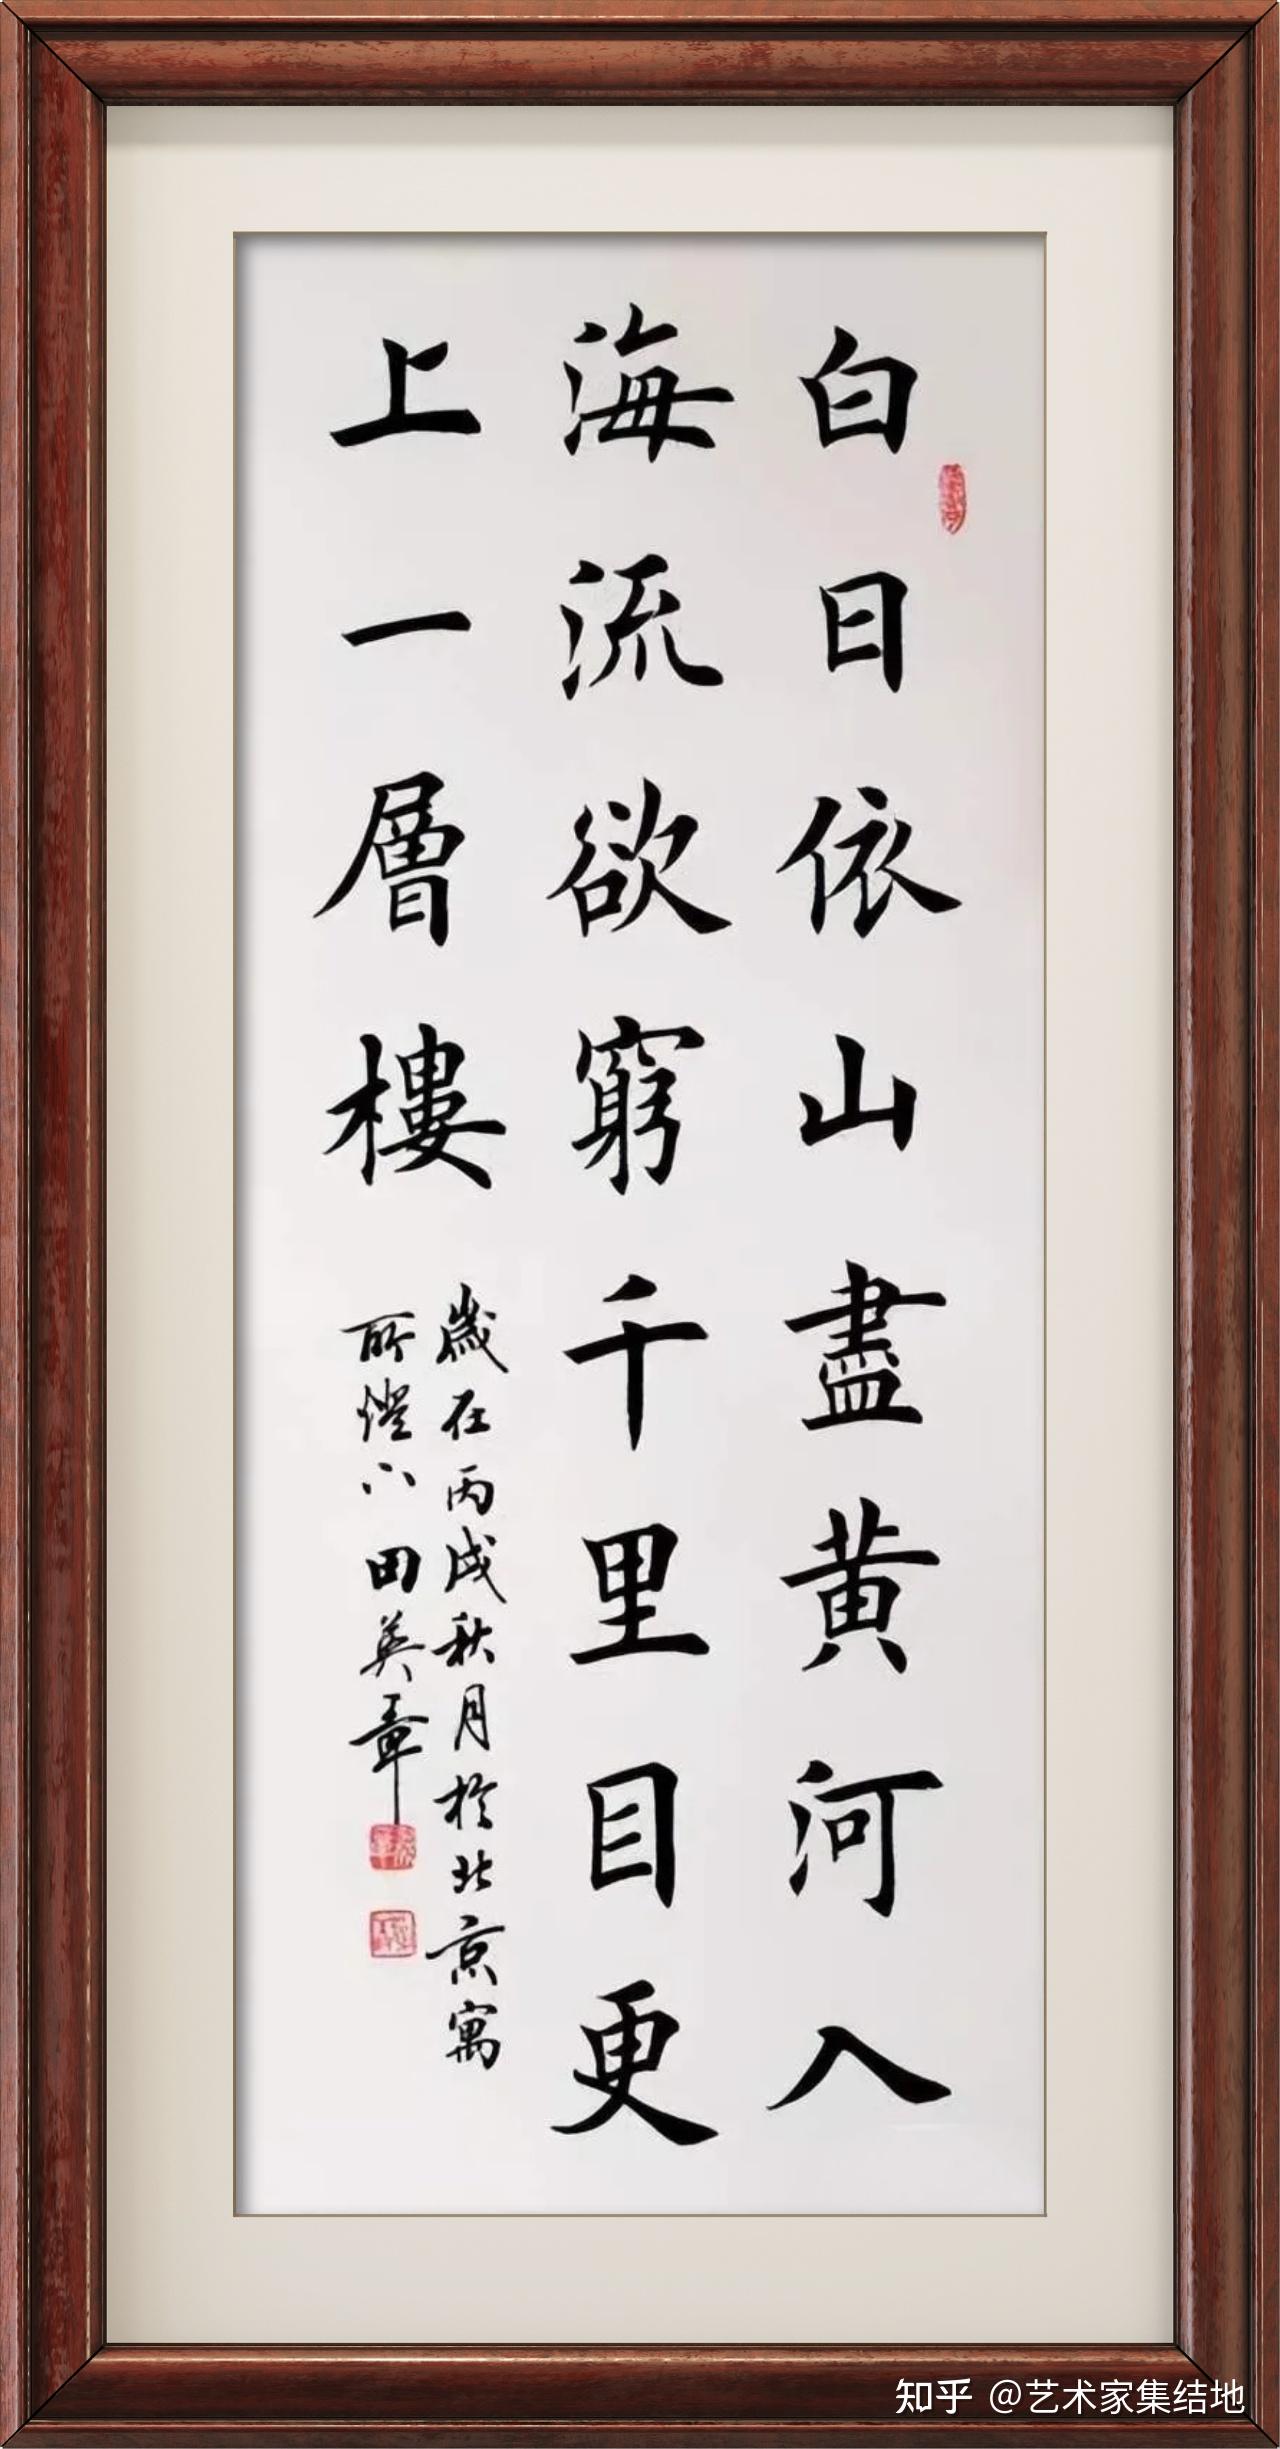 白日依山盡黄河入
海流欲窮千里目更
上一層樓
歲在丙戌秋月於北京寓
所燈下田英章
知乎 @艺术家集结地